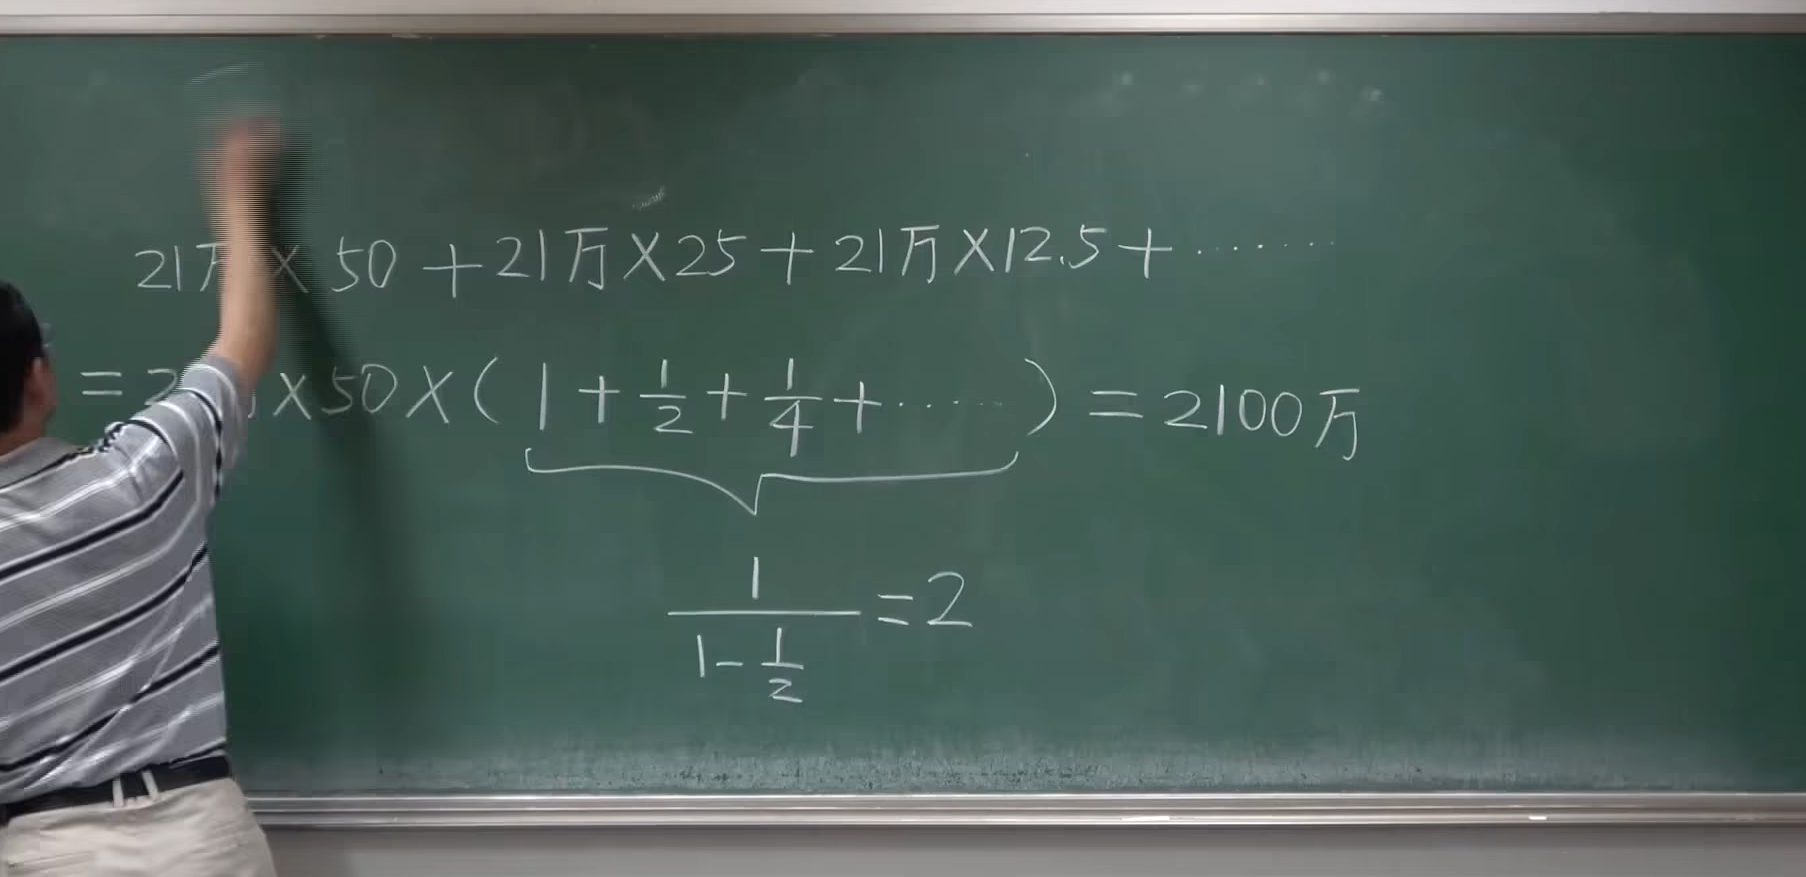 21万×50+21万×25+21万×12.5+·······
=2 ×50×(1+1/2+1/4+·····)=2100万
1/(1-1/2)=2